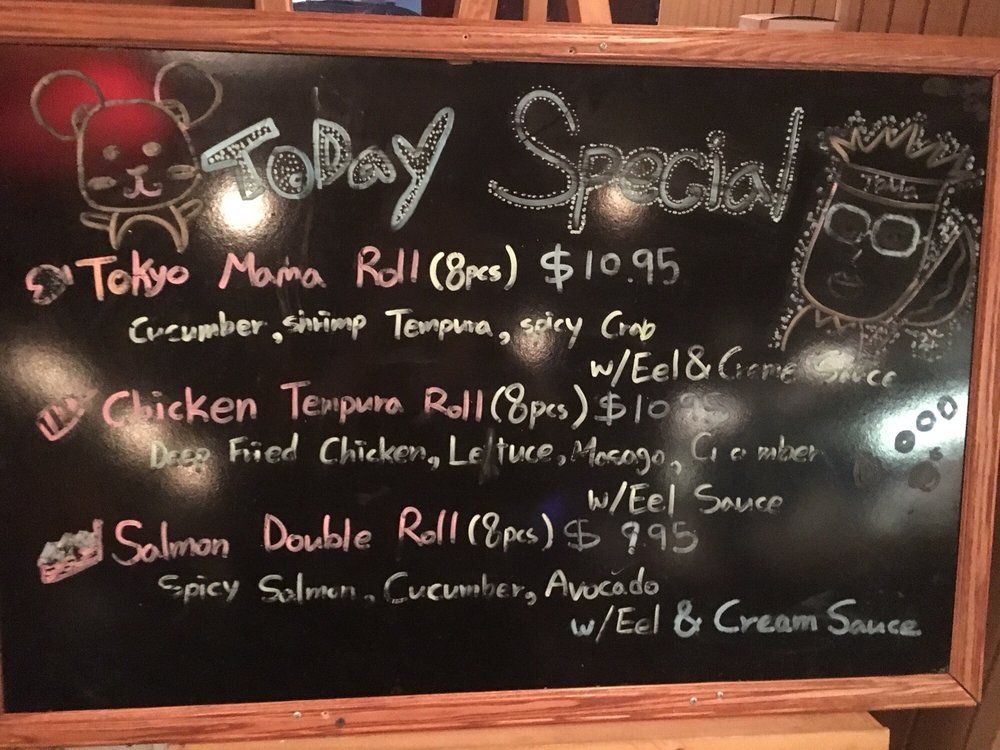 ToDay Special
Tokyo Mama Roll (8pcs) $10.95
Cucumber, shrimp Tempura, spicy Crab
w/Eel & Creme Sauce
Chicken Tempura Roll (8pcs) $10.95
Deep Fried Chicken, Lettuce, Masago, Cucumber
w/Eel Sauce
Salmon Double Roll (8pcs) $9.95
Spicy Salmon, Cucumber, Avocado
w/Eel & Cream Sauce